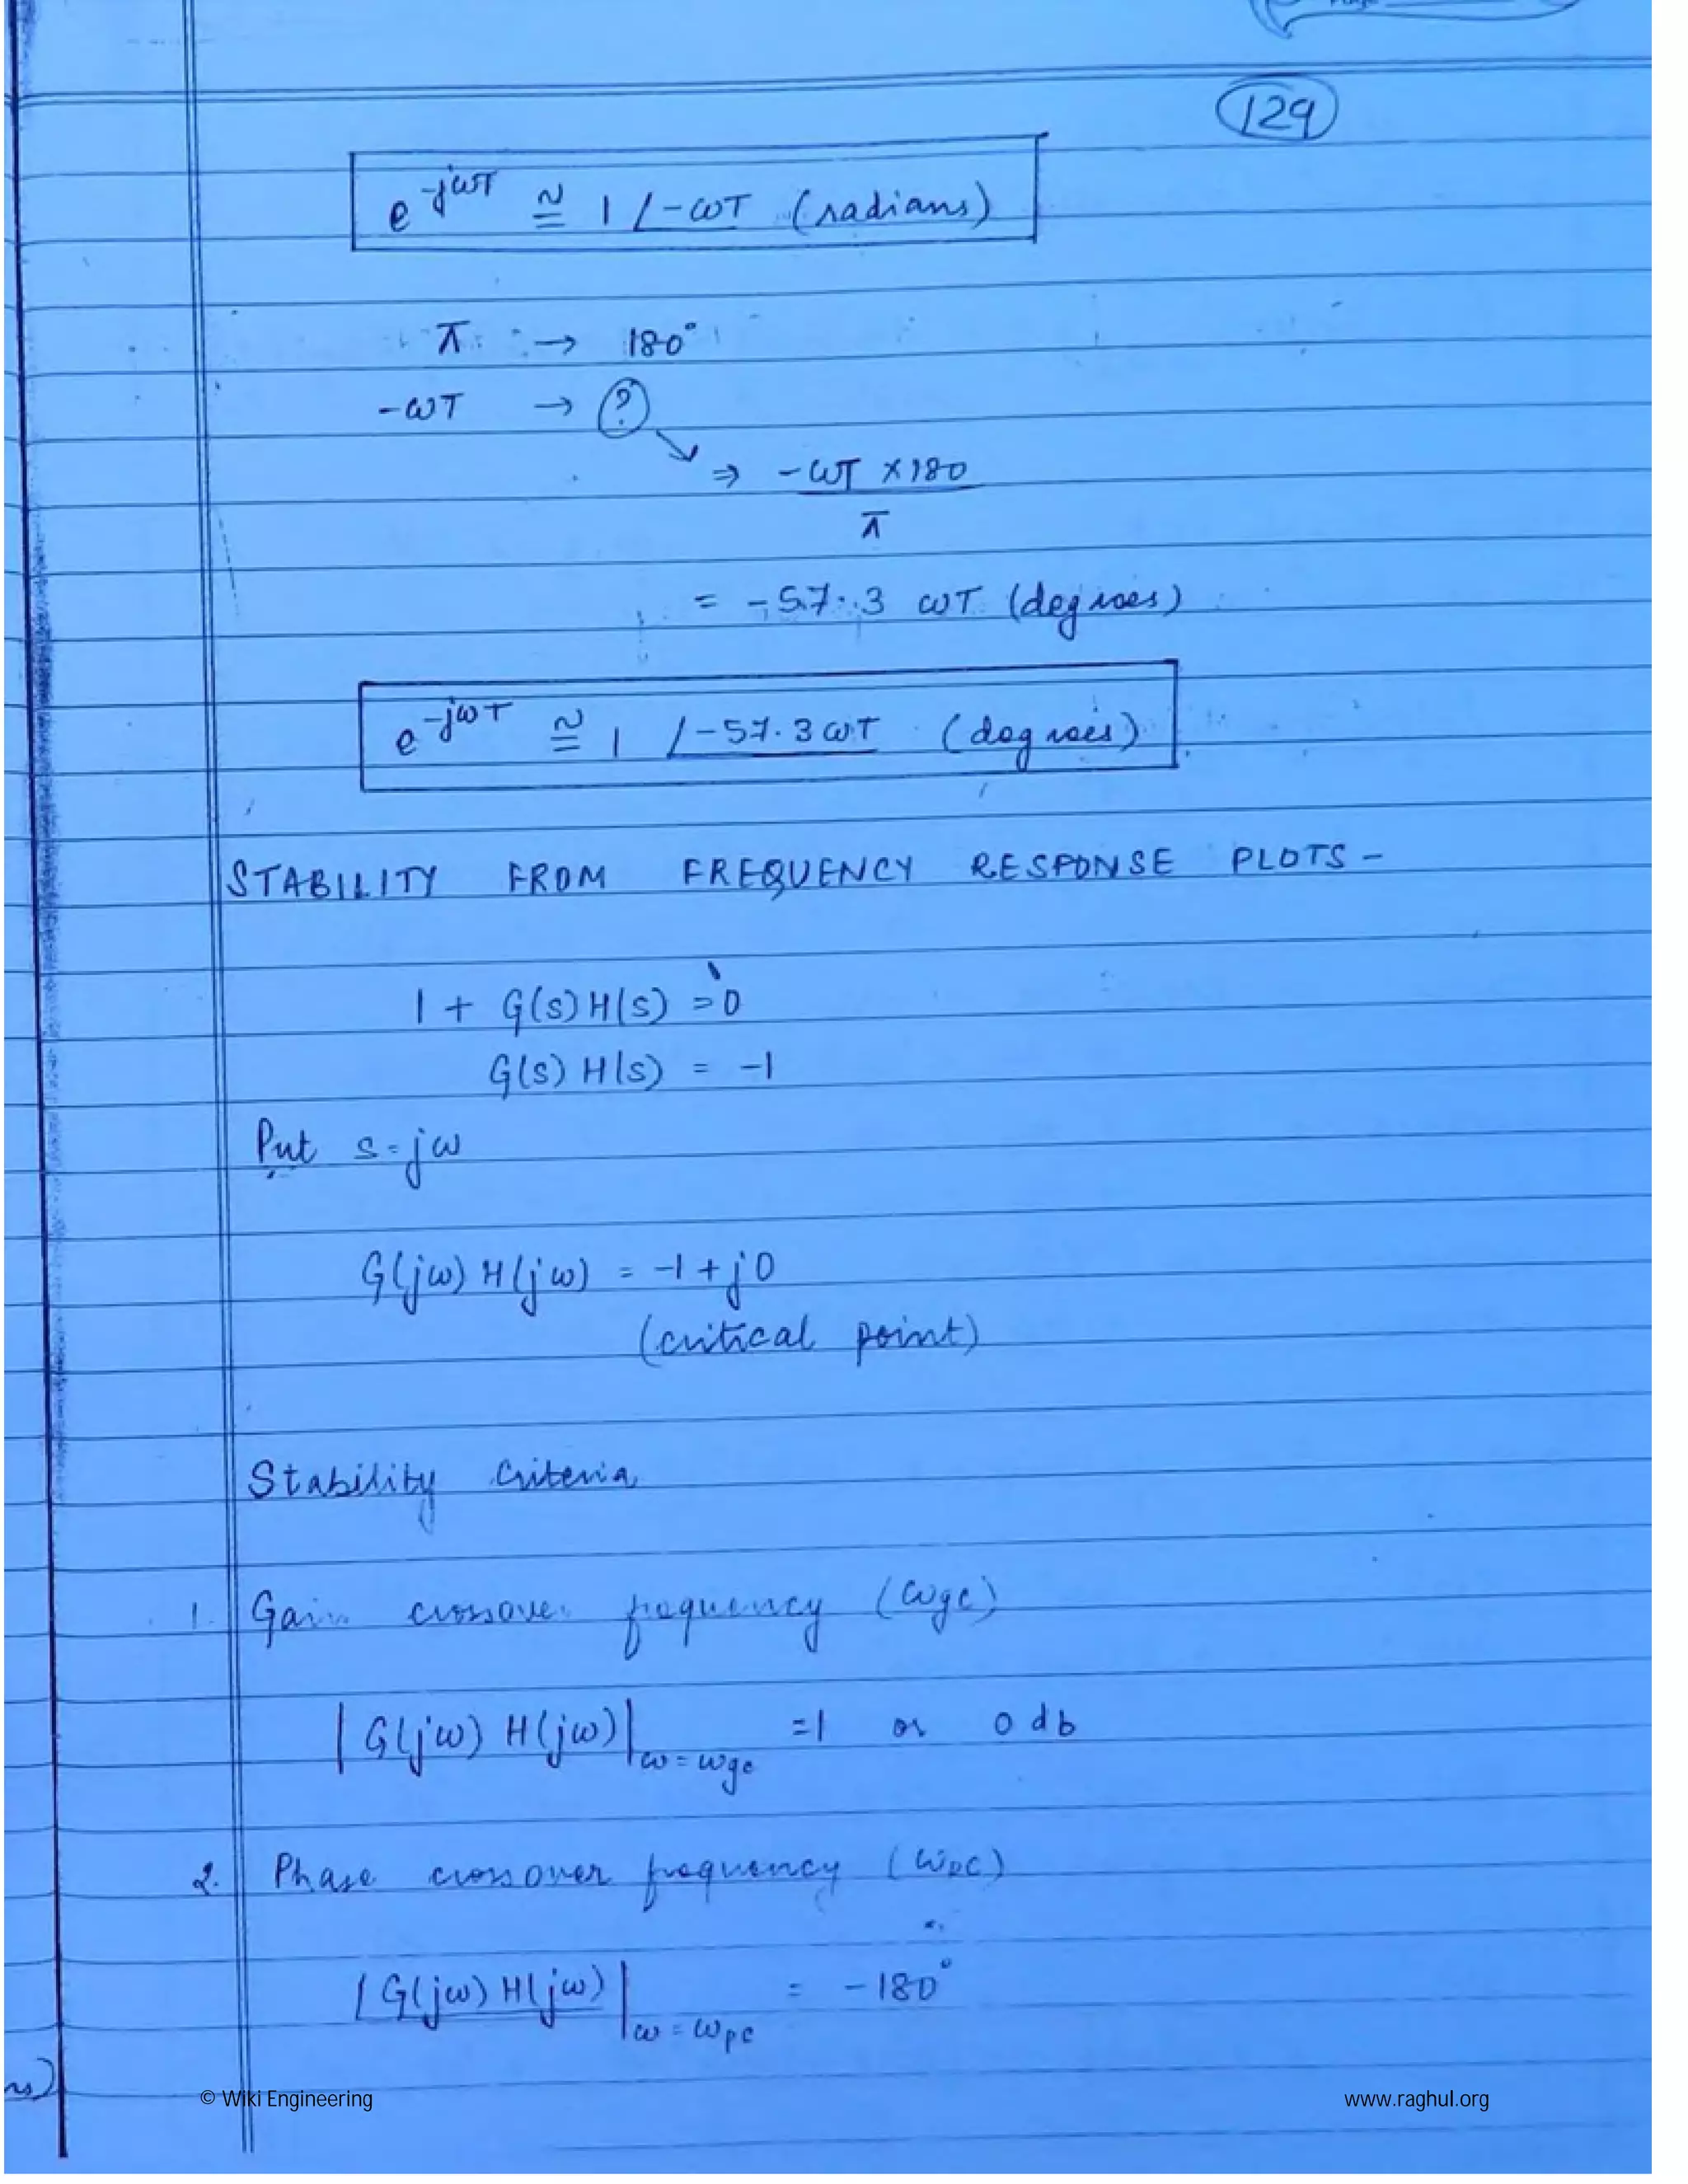 129
e^-jωT ≅ 1 ∠-ωT (radians)
π → 180°
-ωT → ?
⇒ -ωT ×180
π
= -57.3 ωT (degrees)
e^-jωT ≅ 1 ∠-57.3ωT (degrees)
STABILITY FROM FREQUENCY RESPONSE PLOTS -
1 + G(s)H(s) = 0
G(s) H(s) = -1
Put s=jω
G(jω) H(jω) = -1 + j0
(critical point)
Stability Criteria
1. Gain crossover frequency (ωgc)
|G(jω) H(jω)|ω = ωgc =1 or 0 db
2. Phase crossover frequency (ωpc)
∠G(jω) H(jω)|ω = ωpc = -180°
© Wiki Engineering www.raghul.org